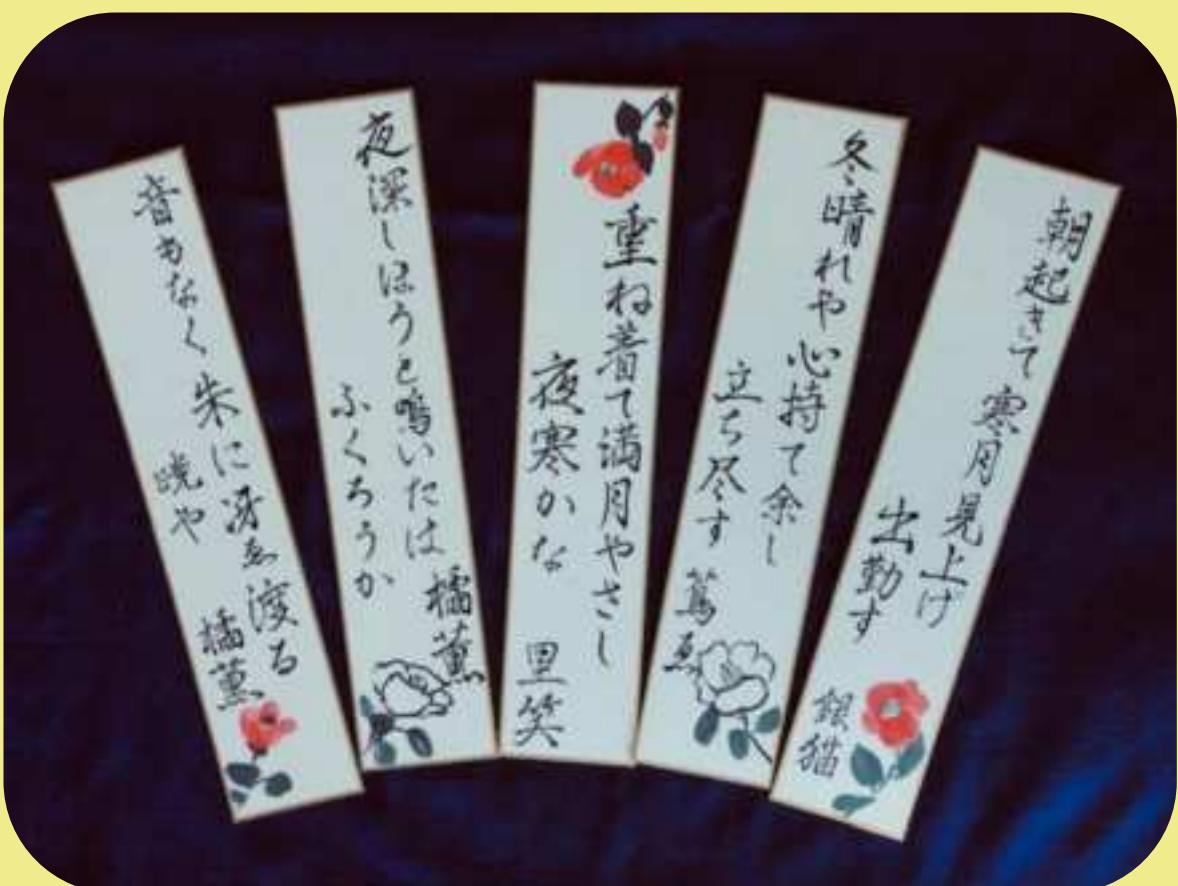 朝起きて寒月見上げ
出勤す
銀猫
冬晴れや心持て余し
立ち尽す
篤ゑ
重ね着て満月やさし
夜寒かな
里笑
夜深しほうと鳴いたは
ふくろうか
橘薫
音もなく朱に冴ゑ渡る
暁や
橘薫